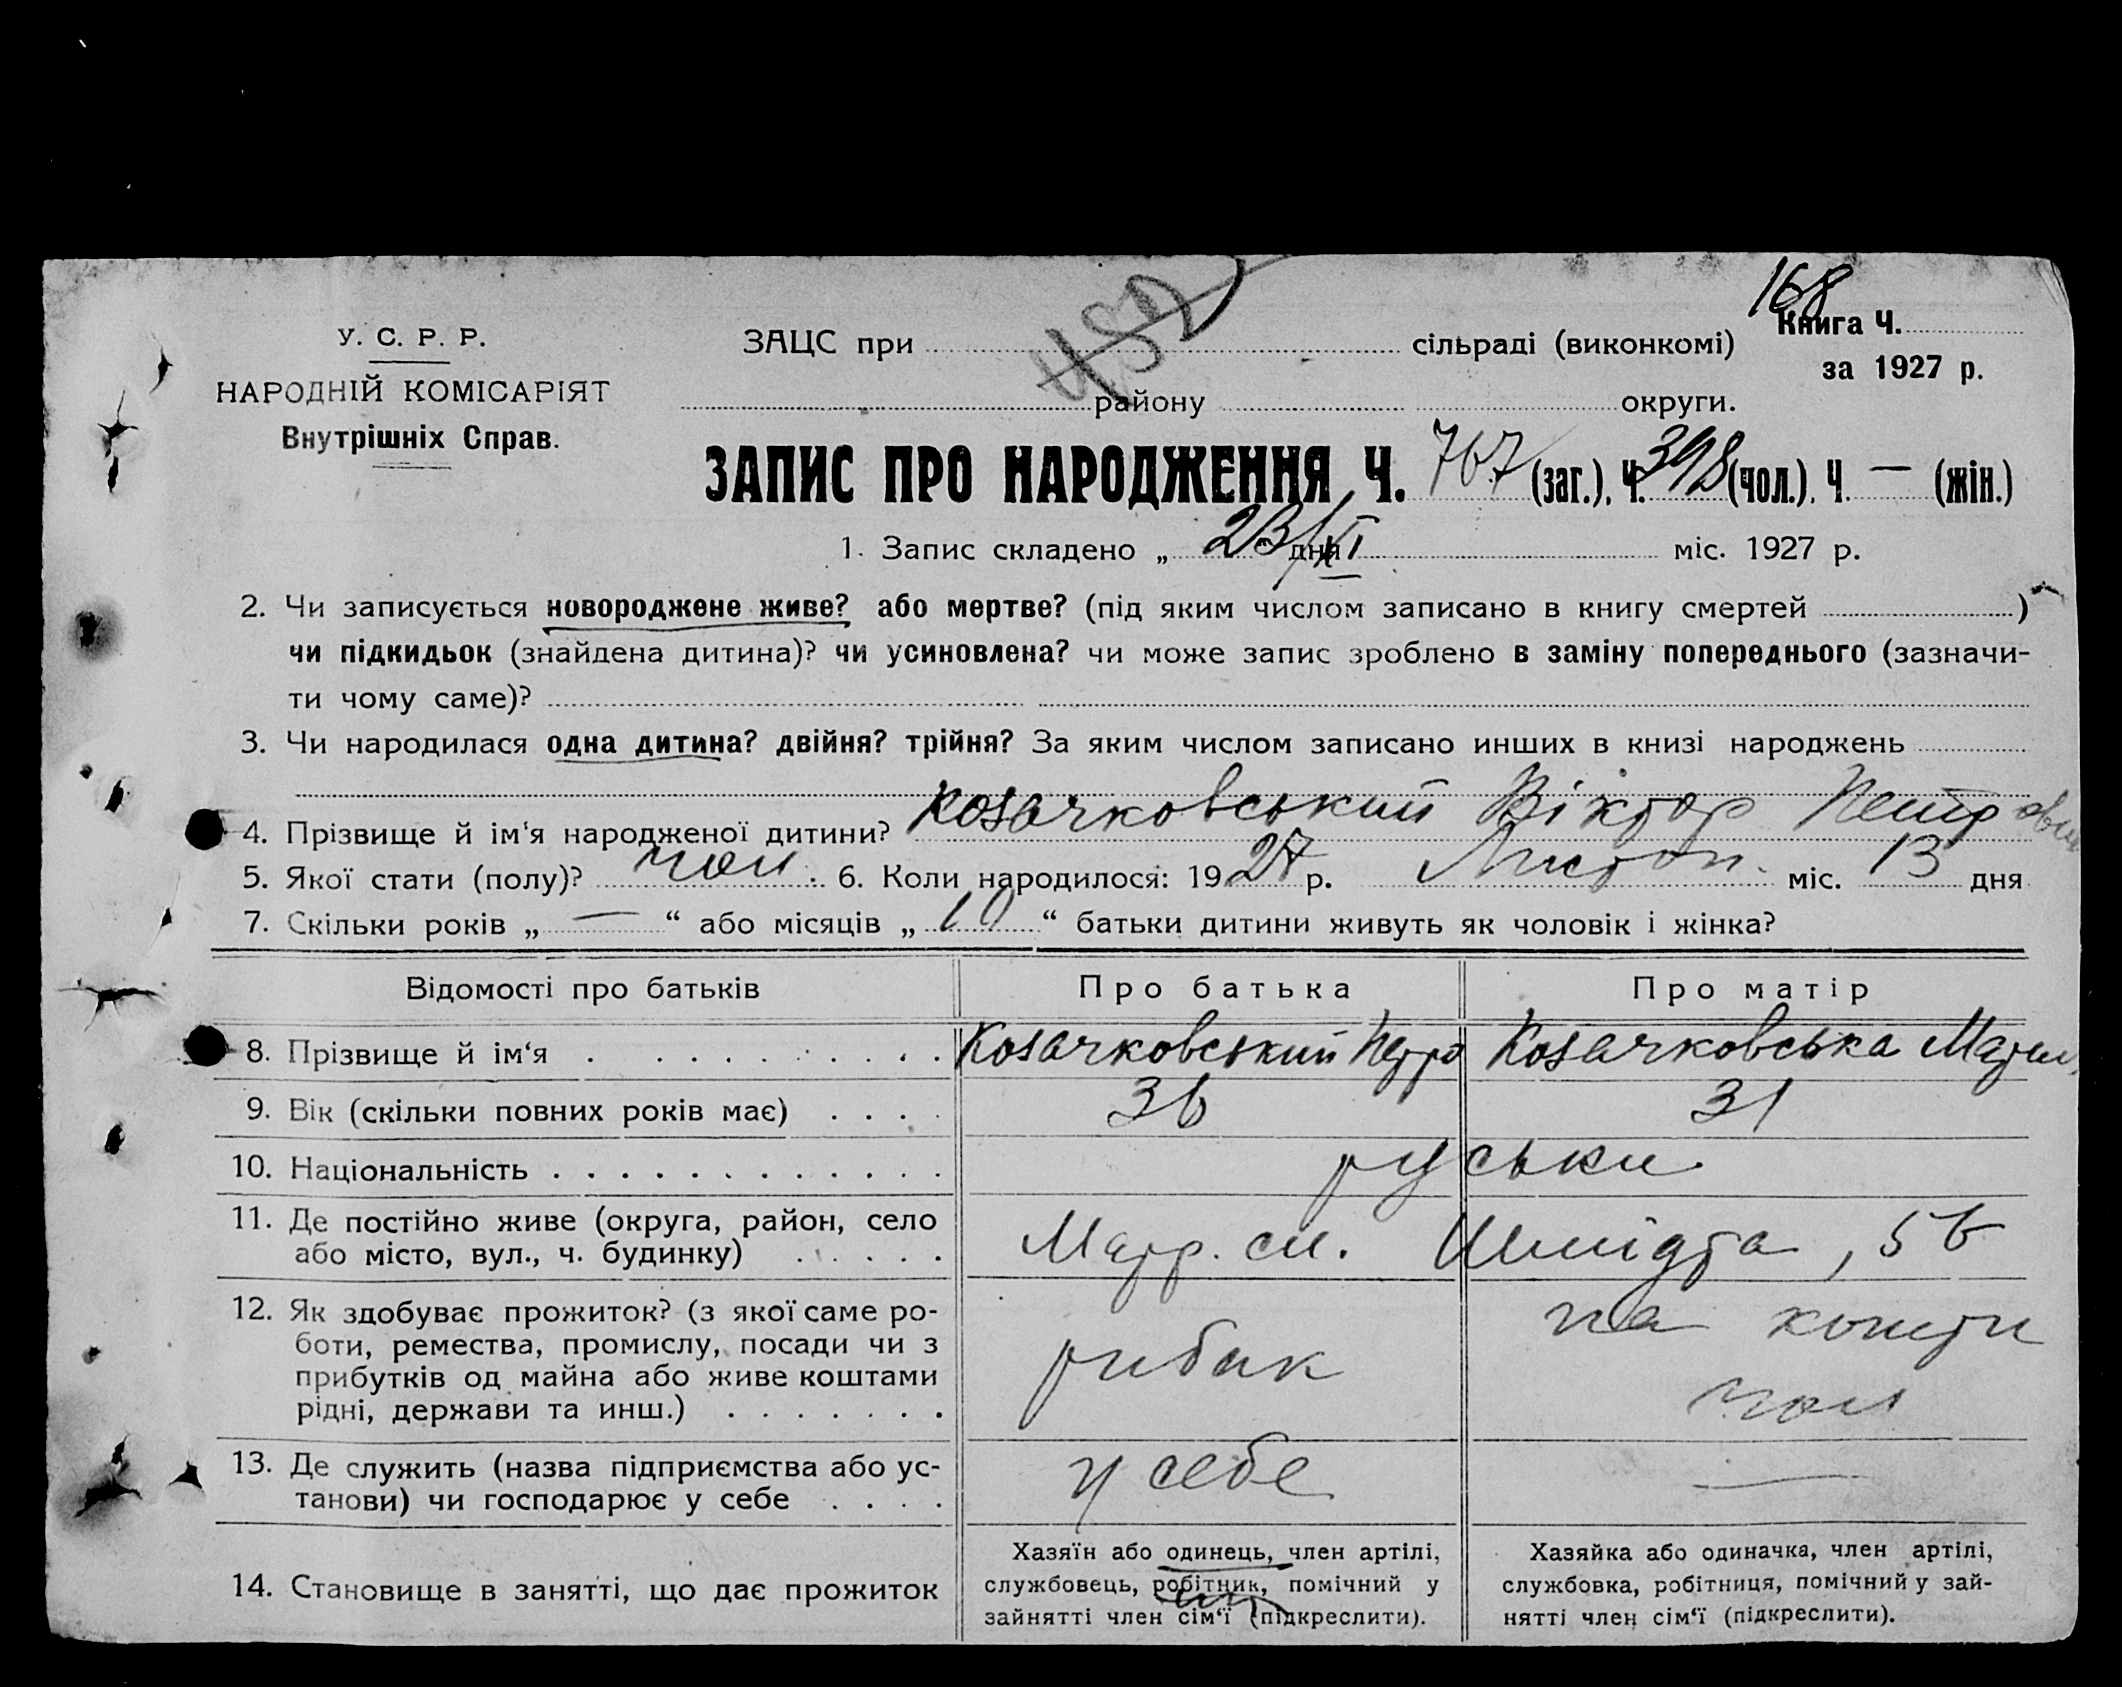 168
У. С. Р. Р.
НАРОДНІЙ КОМІСАРІЯТ
Внутрішніх Справ.
ЗАЦС при сільраді (виконкомі)
Книга Ч.
за 1927 р.
району округи.
ЗАПИС ПРО НАРОДЖЕННЯ Ч. 767 (заг.), Ч. 398 (чол.), Ч. — (жін.)
1. Запис складено „ 23/XI дня міс. 1927 р.
2. Чи записується новороджене живе? або мертве? (під яким числом записано в книгу смертей )
чи підкидьок (знайдена дитина)? чи усиновлена? чи може запис зроблено в заміну попереднього (зазначи-
ти чому саме)?
3. Чи народилася одна дитина? двійня? трійня? За яким числом записано инших в книзі народжень
4. Прізвище й ім‘я народженої дитини? Козачковський Віктор Петрович
5. Якої стати (полу)? чол. 6. Коли народилося: 1927 р. Листоп. міс. 13 дня
7. Скільки років „ — “ або місяців „ 10 “ батьки дитини живуть як чоловік і жінка?
Відомості про батьків Про батька Про матір
8. Прізвище й ім‘я . . . . . . . . . Козачковський Петро Козачковська
9. Вік (скільки повних років має) . . . . 36 31
10. Національність . . . . . . . . . . . . руськи
11. Де постійно живе (округа, район, село
або місто, вул., ч. будинку) . . . . . Шмідта,
12. Як здобуває прожиток? (з якої саме ро-
боти, ремества, промислу, посади чи з
прибутків од майна або живе коштами
рідні, держави та инш.) . . . . . . .
рибак
на кошти
чол
13. Де служить (назва підприємства або ус-
танови) чи господарює у себе . . . .
у себе —
14. Становище в занятті, що дає прожиток
Хазяїн або одинець, член артілі,
службовець, робітник, помічний у
зайнятті член сім‘ї (підкреслити).
Хазяйка або одиначка, член артілі,
службовка, робітниця, помічний у зай-
нятті член сім‘ї (підкреслити).